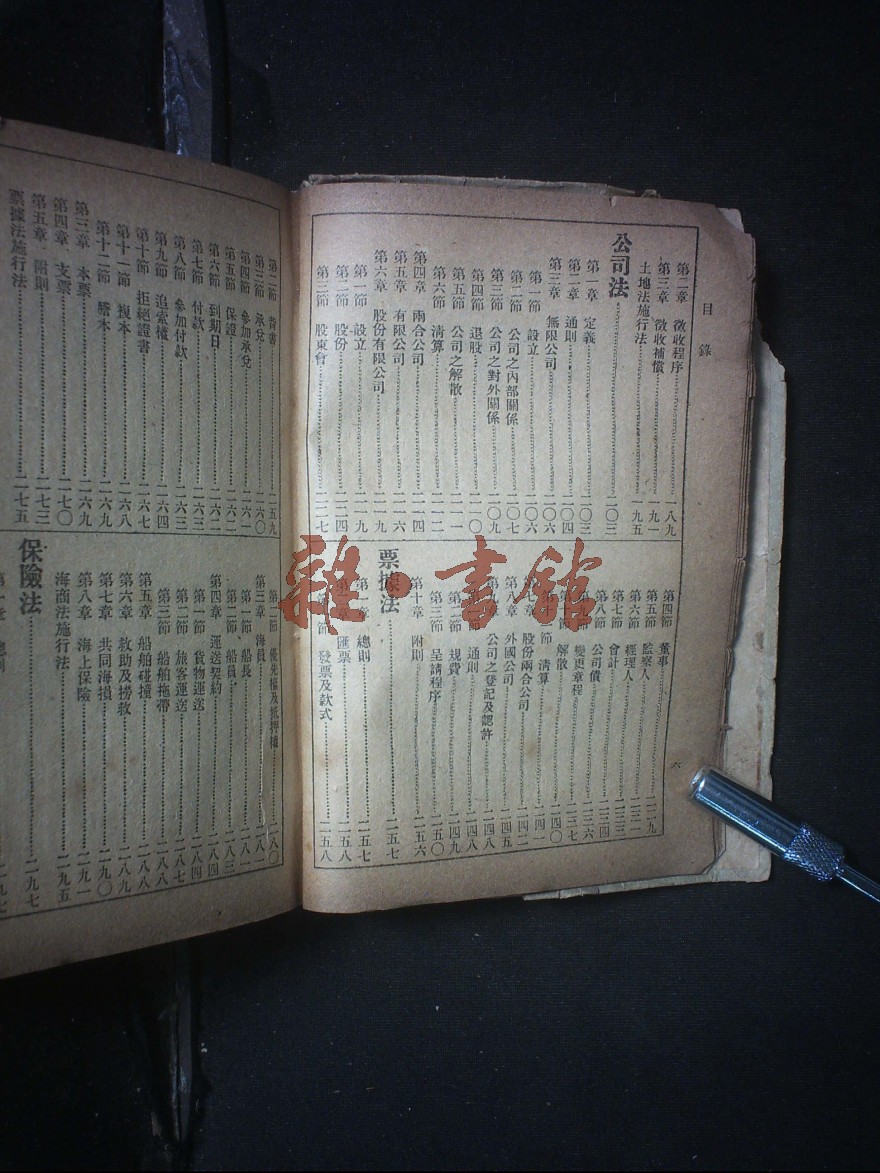 目錄
第二章 徵收程序 一八九
第三章 徵收補償 一九一
土地法施行法 一九五
公司法 二〇三
第一章 定義 二〇三
第二章 通則 二〇四
第三章 無限公司 二〇六
第一節 設立 二〇六
第二節 公司之內部關係 二〇七
第三節 公司之對外關係 二〇九
第四節 退股 二一〇
第五節 公司之解散 二一一
第六節 清算 二一二
第四章 兩合公司 二一四
第五章 有限公司 二一六
第六章 股份有限公司 二一九
第一節 設立 二一九
第二節 股份 二二四
第三節 股東會 二二七
第四節 董事 二二九
第五節 監察人 二三三
第六節 經理人 二三三
第七節 會計 二三四
第八節 公司債 二三六
第九節 變更章程 二三七
解散 二四〇
節 清算 二四一
股份兩合公司 二四二
第八章 外國公司 二四五
第九章 公司之登記及認許 二四八
通則 二四八
第二節 規費 二四九
第三節 呈請程序 二五〇
第十章 附則 二五六
票據法 二五七
第一章 總則 二五七
匯票 二五八
節 發票及款式 二五八
六
第二節 背書 二五九
第三節 承兌 二六〇
第四節 參加承兌 二六一
第五節 保證 二六二
第六節 到期日 二六二
第七節 付款 二六三
第八節 參加付款 二六三
第九節 追索權 二六四
第十節 拒絕證書 二六七
第十一節 複本 二六八
第十二節 謄本 二六九
第三章 本票 二六九
第四章 支票 二七〇
第五章 附則 二七三
票據法施行法 二七五
第二節 優先權及抵押權 二八〇
第三章 海員 二八一
第一節 船長 二八一
第二節 船員 二八三
第四章 運送契約 二八四
第一節 貨物運送 二八四
第二節 旅客運送 二八七
第三節 船舶拖帶 二八八
第五章 船舶碰撞 二八八
第六章 救助及撈救 二八九
第七章 共同海損 二九〇
第八章 海上保險 二九一
海商法施行法 二九五
保險法 二九七
第一章 總則 二九七
雜·書館